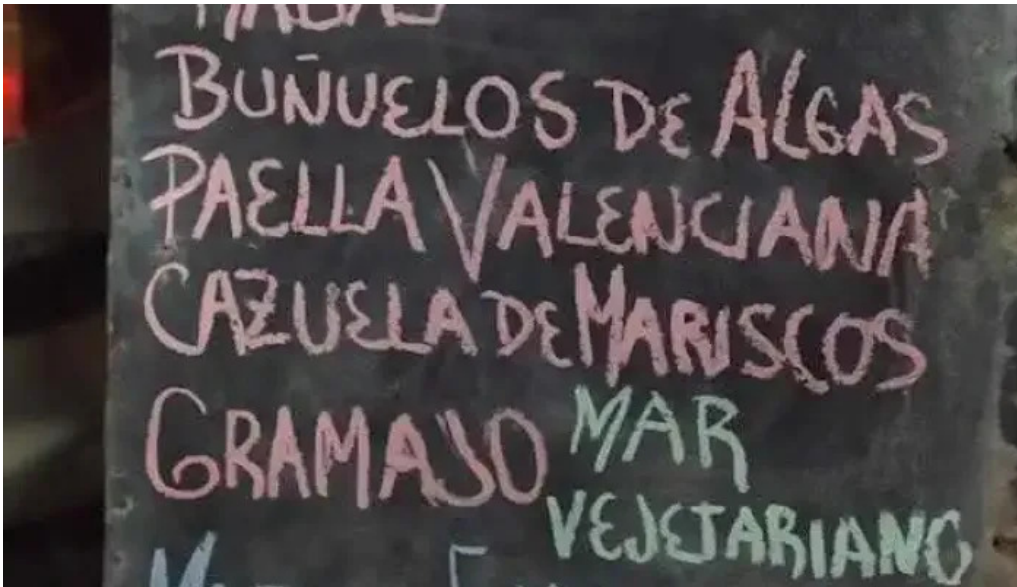 BUÑUELOS DE ALGAS
PAELLA VALENCIANA
CAZUELA DE MARISCOS
GRAMAJO MAR
VEJETARIANO